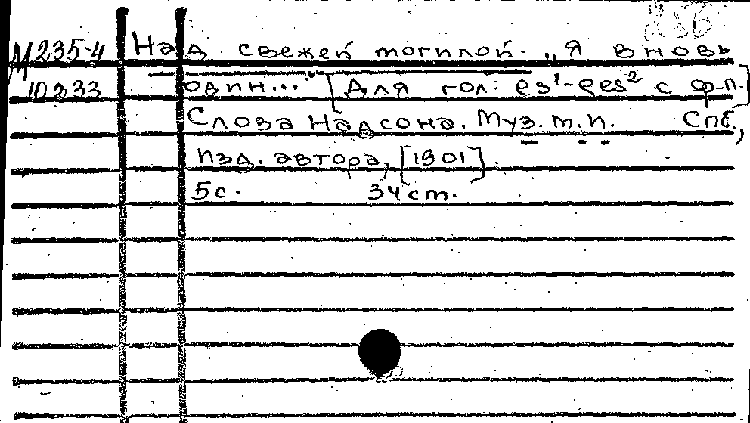 М 235-4 Над свежей могилой. „Я вновь
10233 один..." [Для гол: es¹-ges² с ф.п.]
Слова Надсона. Муз. т.п. СПб,
Изд. автора, [1901]
5 с. 34 cm.